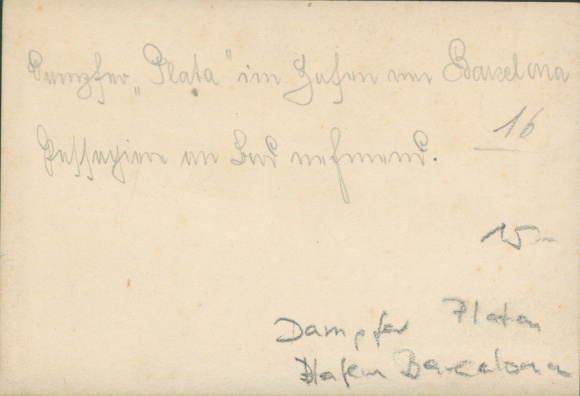 Dampfer „Plata“ im Hafen von Barcelona
16
Passagiere an Bord nehmend.
15-
Dampfer Platon
Hafen Barcelona